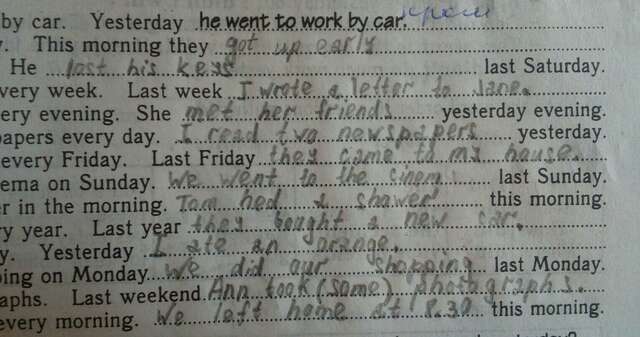 by car. Yesterday he went to work by car.
This morning they got up early
He lost his keys last Saturday.
every week. Last week I wrote a letter to Jane.
ery evening. She met her friends yesterday evening.
papers every day. I read two newspapers yesterday.
every Friday. Last Friday they came to my house.
ema on Sunday. We went to the cinema last Sunday.
er in the morning. Tom had a shower this morning.
ry year. Last year they bought a new car.
y. Yesterday I ate an orange.
ping on Monday. We did our shopping last Monday.
aphs. Last weekend Ann took (some) photographs.
every morning. We left home at 8.30 this morning.